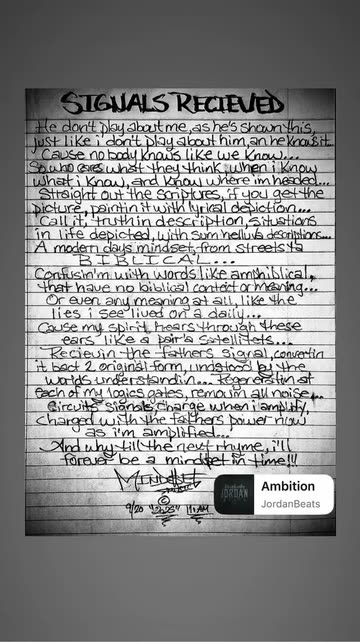 SIGNALS RECIEVED
He don't play about me, as he's shown this,
just like i don't play about him, an he knows it...
Cause nobody knows like we know...
So who cares what they think, when i know
what i know, and know where im headed...
Straight out the scriptures, if you get the
picture, paintin it with lyrical depiction...
Call it, truth in description, situations
in life depicted, with sum mellow descriptions...
A modern days mindset, from streets ta
BIBLICAL...
Confusin'm with words like amphiblical,
that have no biblical context or meaning...
Or even any meaning at all, like the
lies i see lived on a daily...
Cause my spirit, hears through these
ears like a pair'a satellites...
Recievin the fathers signal, convertin
it bact 2 original form, undstood by the
worlds understandin... Regeneratin at
each of my logics gates, removin all noise...
Circuits signals, charge when i amplify,
charged with the fathers power now
as i'm amplified...
And why till the next rhyme, i'll
forever be a mindset in time!!!
MINDSET
©
9/20 "2025" 11:11AM
Ambition
JORDAN
JordanBeats